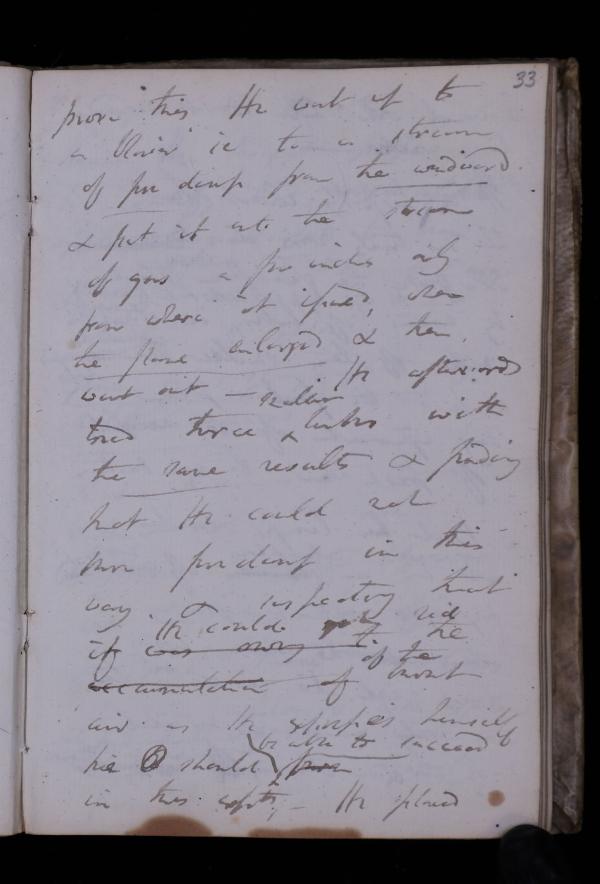 33
prove this He went up to
a blower ie to a stream
of fire damp from the windward
& put it into the stream
of gas a few inches only
from where it issued, when
the flame enlarged & then
went out — He afterwards
tried three similar lamps with
the same results & finding
that He could not
fire damp in this
way & that
if He could get rid
of the
accumulation of burnt
air as He himself
he should be able to succeed
in this — He placed